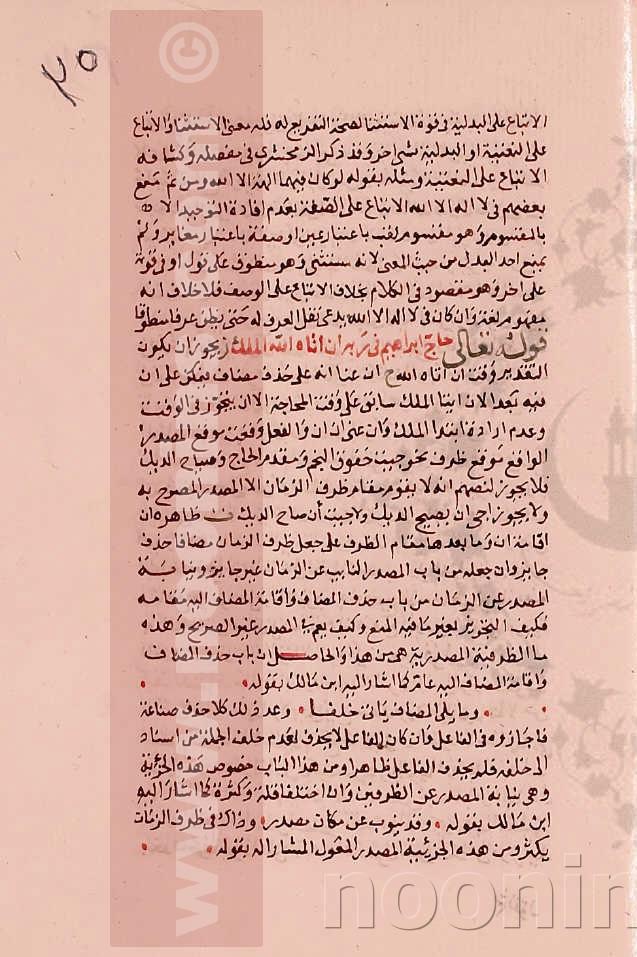 ٣٥
الاتباع على البدلية في قوة الاستثنا لصحة التفريع له فله معنى الاستثنا والاتباع
على النعتية او البدلية شي اخر وقد ذكر الزمخشري في مفصله وكشافه
الاتباع على النعتية ومثله بقوله لو كان فيهما الهة الا الله ومن ثم منع
بعضهم في لا اله الا الله الاتباع على الصفة بعدم افادة التوحيد الا
بالمفهوم وهو مفهوم لقب باعتبار عين او صفة باعتبار مغاير ولم
يمنع احد البدل من حيث المعنى لانه مستثنى وهو منطوق على قول او في قوة
على اخر وهو مقصود في الكلام بخلاف الاتباع على الوصف فلا خلاف انه
مفهوم لغة وان كان في لا اله الا الله يدعى نقل العرف له حتى يبقى عرفا منطوقا
قوله تعالى حاج ابراهيم في ربه ان اتاه الله الملك يجوز ان يكون
التقدير وقت ان اتاه الله ح ان عنا انه على حذف مضاف يمكن على ان
فيه بعد الان ايتا الملك سابق على وقت المحاجة الا ان يتجوز في الوقت
وعدم ارادة ابتدا الملك وان عنى ان ان والفعل وقعت موقع المصدر
الواقع موقع ظرف نحو جيت خفوق النجم ومقدم الحاج وصياح الديك
فلا يجوز لنصهم انه لا يقوم مقام ظرف الزمان الا المصدر المصرح به
ولا يجوز اجي ان يصيح الديك ولا جيت أن صاح الديك ظاهره ان
اقامة ان وما بعدها مقام الظرف على جعل ظرف الزمان مضافا حذف
جايز وان جعله من باب المصدر النايب عن الزمان غير جايز ونيابة
المصدر عن الزمان من باب حذف المضاف واقامة المضاف اليه مقامه
فكيف التجويز بغير مافيه المنع وكيف يعم في المصدر غير الصريح وهذه
ما الظرفية المصدرية هي من هذا والحاصل ان باب حذف المضاف
واقامة المضاف اليه عام كما اشار اليه ابن مالك بقوله
وما يلي المضاف ياتي خلفا وعد ذلك كلا حذف صناعة
فاجازوه في الفاعل وان كان الفاعل لا يحذف لعدم خلف الجملة من اسناد
الى خلفه فلم يحذف الفاعل ظاهرا ومن هذا الباب خصوص هذه الجزئية
وهي نيابة المصدر عن الظرفين وان اختلفا قلة وكثرة كما اشار اليه
ابن مالك بقوله وقد ينوب عن مكان مصدر وذاك في ظرف الزمان
يكثر ومن هذه الجزئية المصدر المؤول المشار اله بقوله
www.n
©
noonin